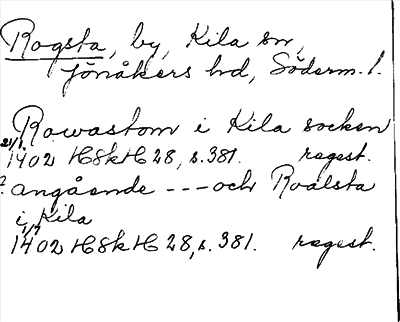 Rogsta, by, Kila sn,
Jönåkers hd, Söderm. l.
Rawastom i Kila socken
21/1 1402 HSkH 28, s. 381. regest.
? angående --- och Roalsta
i Kila
1/7 1402 HSkH 28, s. 381. regest.